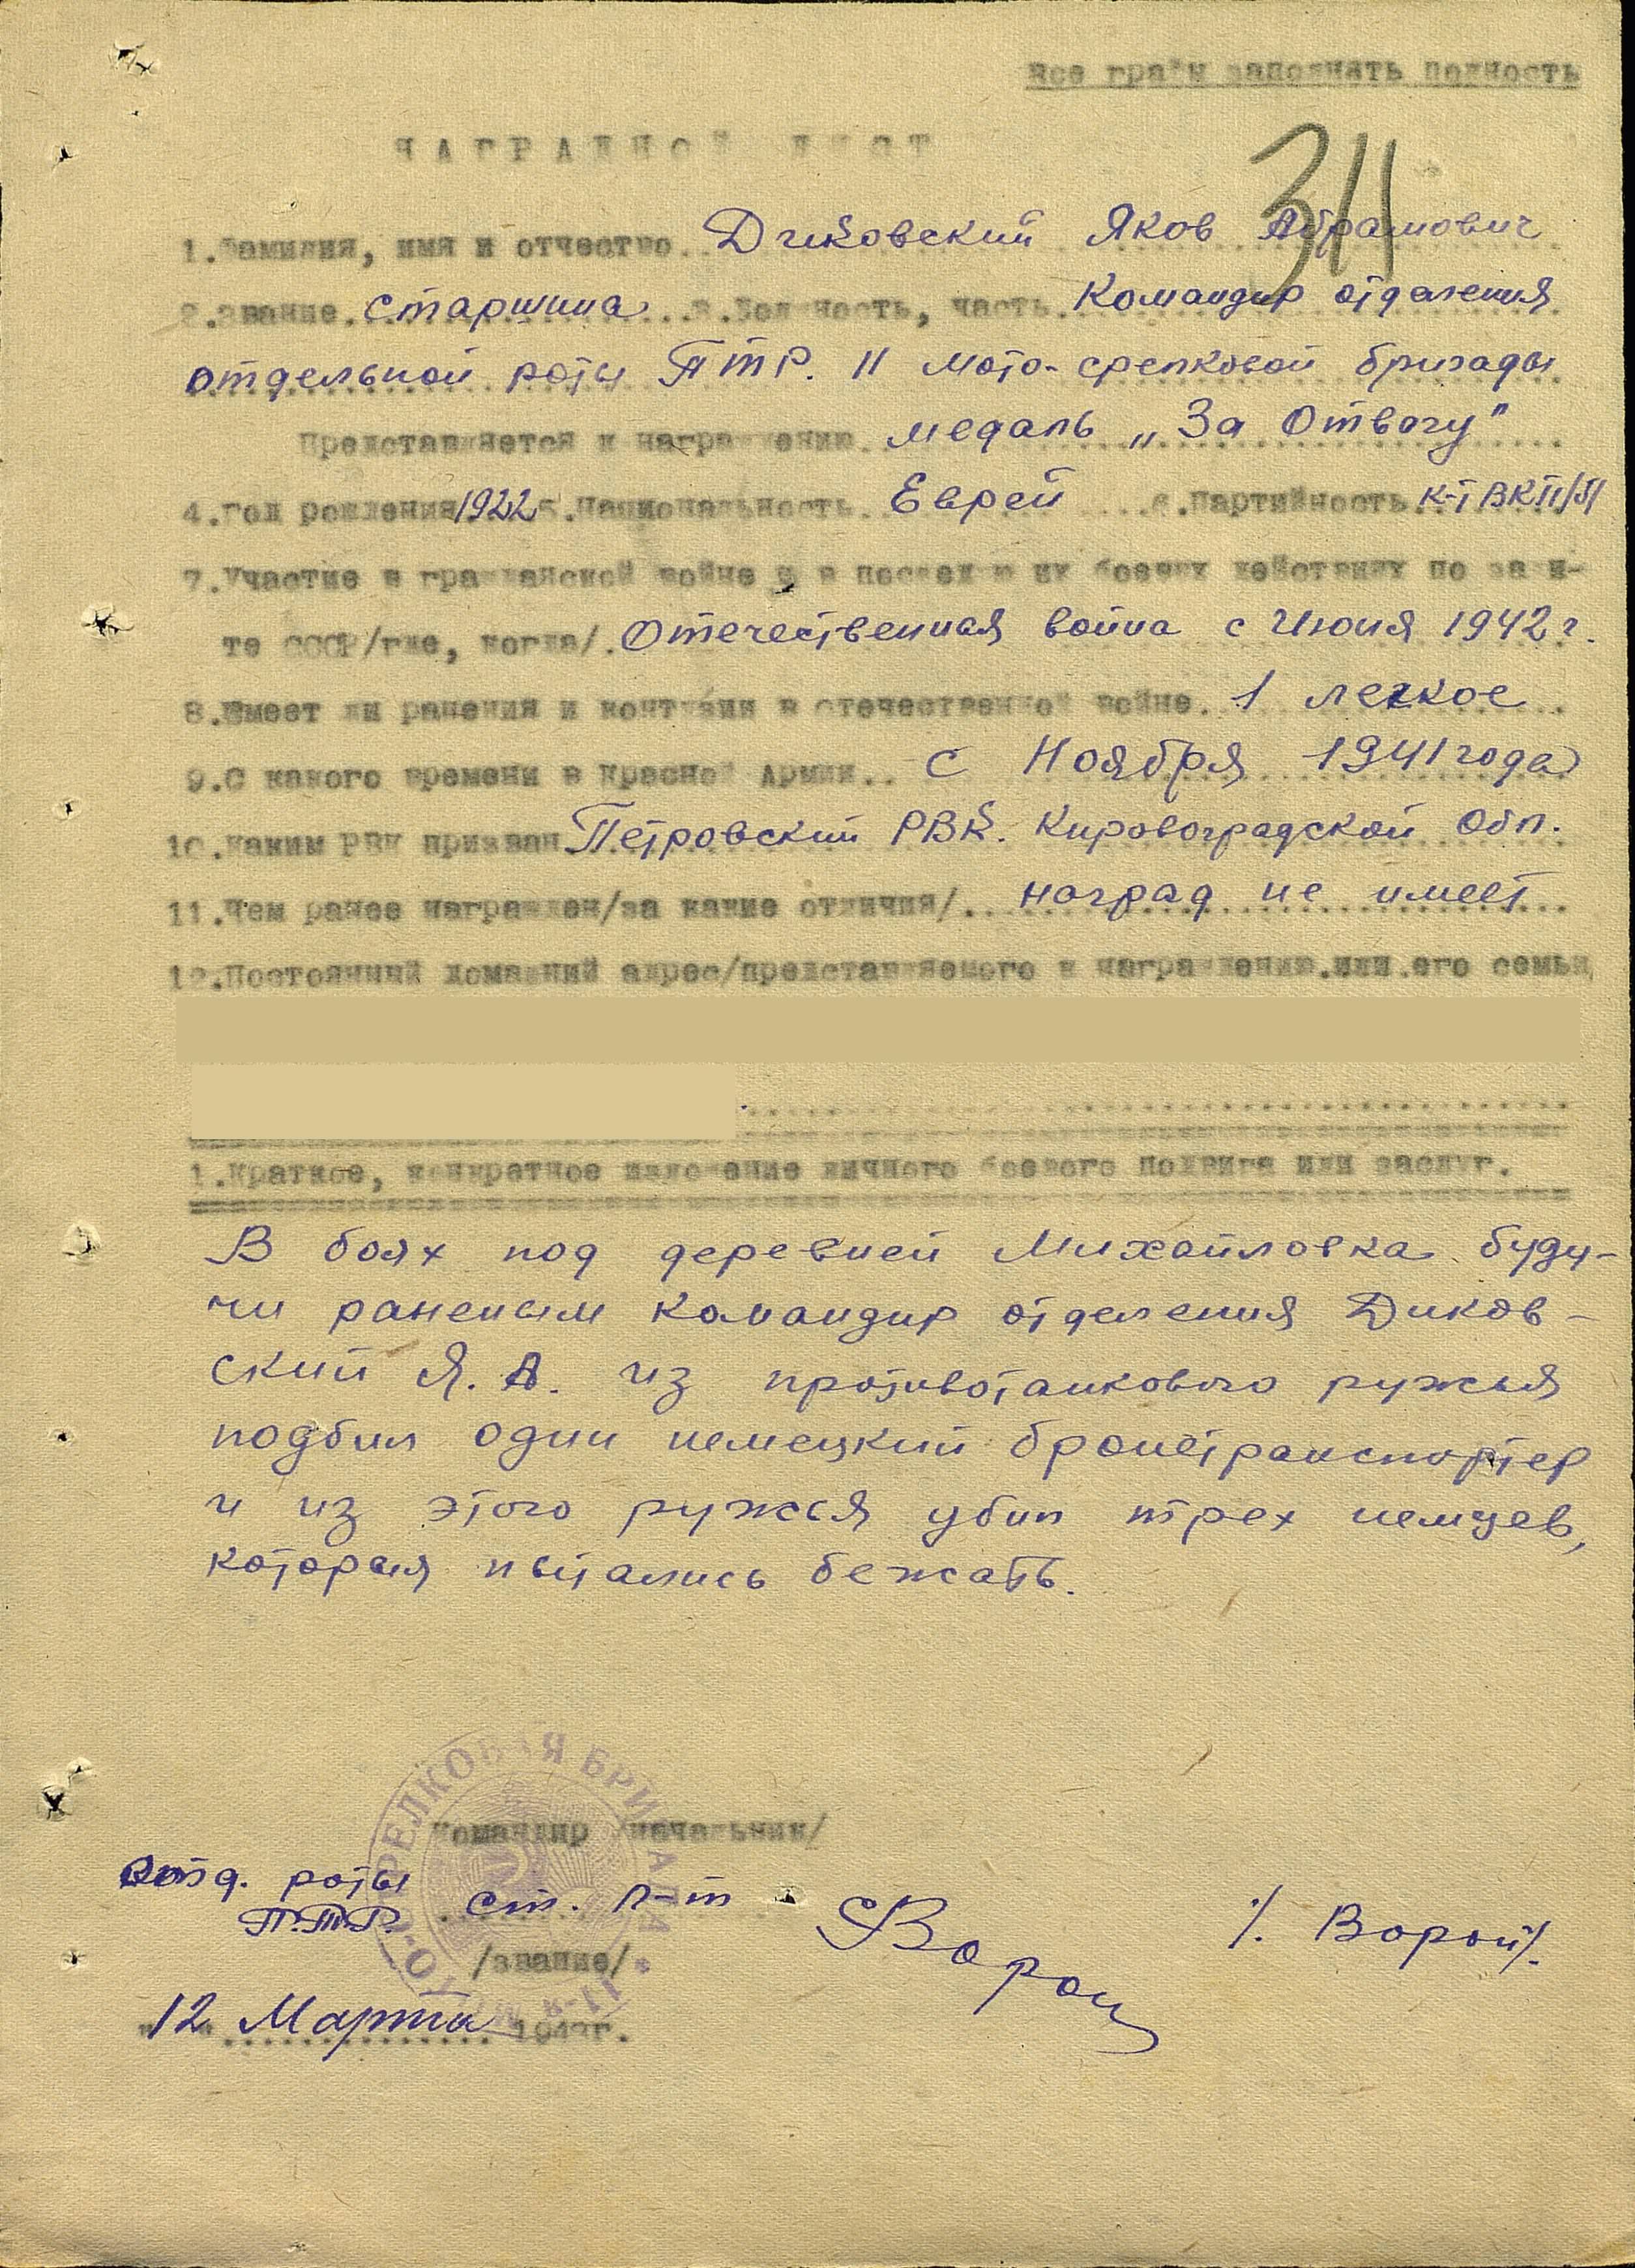 Все графы заполнять полность
НАГРАДНОЙ ЛИСТ
311
1.Фамилия, имя и отчество. Диковский Яков Абрамович
2.Звание. старшина 3.Должность, часть. Командир отделения
отдельной роты ПТР. 11 мото-срелковой бригады
Представляется к награждению. медаль „За Отвагу"
4.Год рождения 1922 5.Национальность. Еврей 6.Партийность. к-т ВКП/б/
7.Участие в гражданской войне и в последующих боевых действиях по защи-
те СССР/где, когда/. Отечественная война с Июня 1942 г.
8.Имеет ли ранения и контузии в отечественной войне. 1 легкое
9.С какого времени в Красной Армии.. с Ноября 1941 года
10.Каким РВК призван Петровский РВК. Кировоградской Обл.
11.Чем ранее награжден/за какие отличия/. наград не имеет
12.Постоянный домашний адрес/представляемого к награждению.или.его семьи,
1.Краткое, конкретное изложение личного боевого подвига или заслуг.
В боях под деревней Михайловка буду-
чи раненым командир отделения Диков-
ский Я. А. из противотанкового ружья
подбил один немецкий бронетранспортер
и из этого ружья убил трех немцев,
которыя пытались бежать.
СТРЕЛКОВАЯ БРИГАДА * 11-я МОТО-
Командир /начальник/
отд. роты П.Т.Р. ст. л-т Ворон /. Ворон/.
/звание/
12 Марта 1943г.